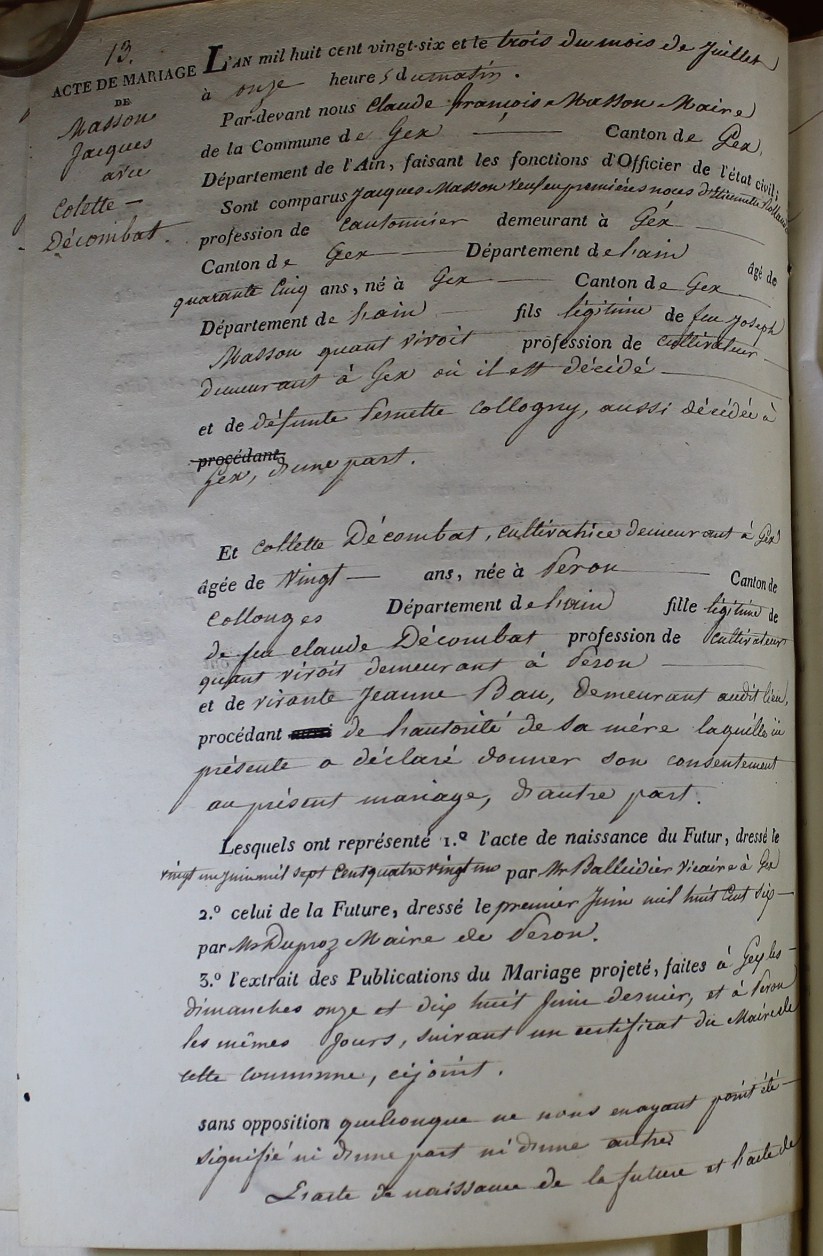 13.
ACTE DE MARIAGE
DE
Masson
Jacques
avec
Colette —
Décombat.
L'AN mil huit cent vingt-six et le trois du mois de Juillet
à onze heures du matin.
Par-devant nous Claude françois Masson Maire
de la Commune de Gex — Canton de Gex,
Département de l'Ain, faisant les fonctions d'Officier de l'état civil;
Sont comparus Jacques Masson veuf en premières noces d'Etiennette
profession de cantonnier demeurant à Gex —
Canton de Gex — Département de lain âgé de
quarante Cinq ans, né à Gex — Canton de Gex —
Département de lain — fils légitime de feu Joseph
Masson quant vivoit profession de cultivateur —
demeurant à Gex où il est décédé —
et de défunte Pernette Collogny, aussi décédée à
procédant
Gex, d'une part.
Et Collette Décombat, cultivatrice demeurant à Gex
âgée de vingt — ans, née à Peron — Canton de
Collonges Département de lain fille légitime de
de feu Claude Décombat profession de cultivateur
quant vivoit demeurant à Peron —
et de vivante Jeanne Bau, demeurant audit lieu,
procédant de l'autorité de sa mére laquelle ici
présente a déclaré donner son consentement
au présent mariage, d'autre part.
Lesquels ont représenté 1.º l'acte de naissance du Futur, dressé le
vingt un Juin mil sept Cent quatre vingt un par Mr Balleidier Vicaire à Gex
2.º celui de la Future, dressé le premier Juin mil huit Cent six —
par Mr Duproz Maire de Peron.
3.º l'extrait des Publications du Mariage projeté, faites à Gex les —
dimanches onze et dix huit Juin dernier, et à Peron
les mêmes Jours, suivant un certificat du Maire de
cette commune, cijoint.
sans opposition quelconque ne nous enayant point été —
signifié ni d'une part ni d'une autre
L'acte de naissance de la future et l'acte de